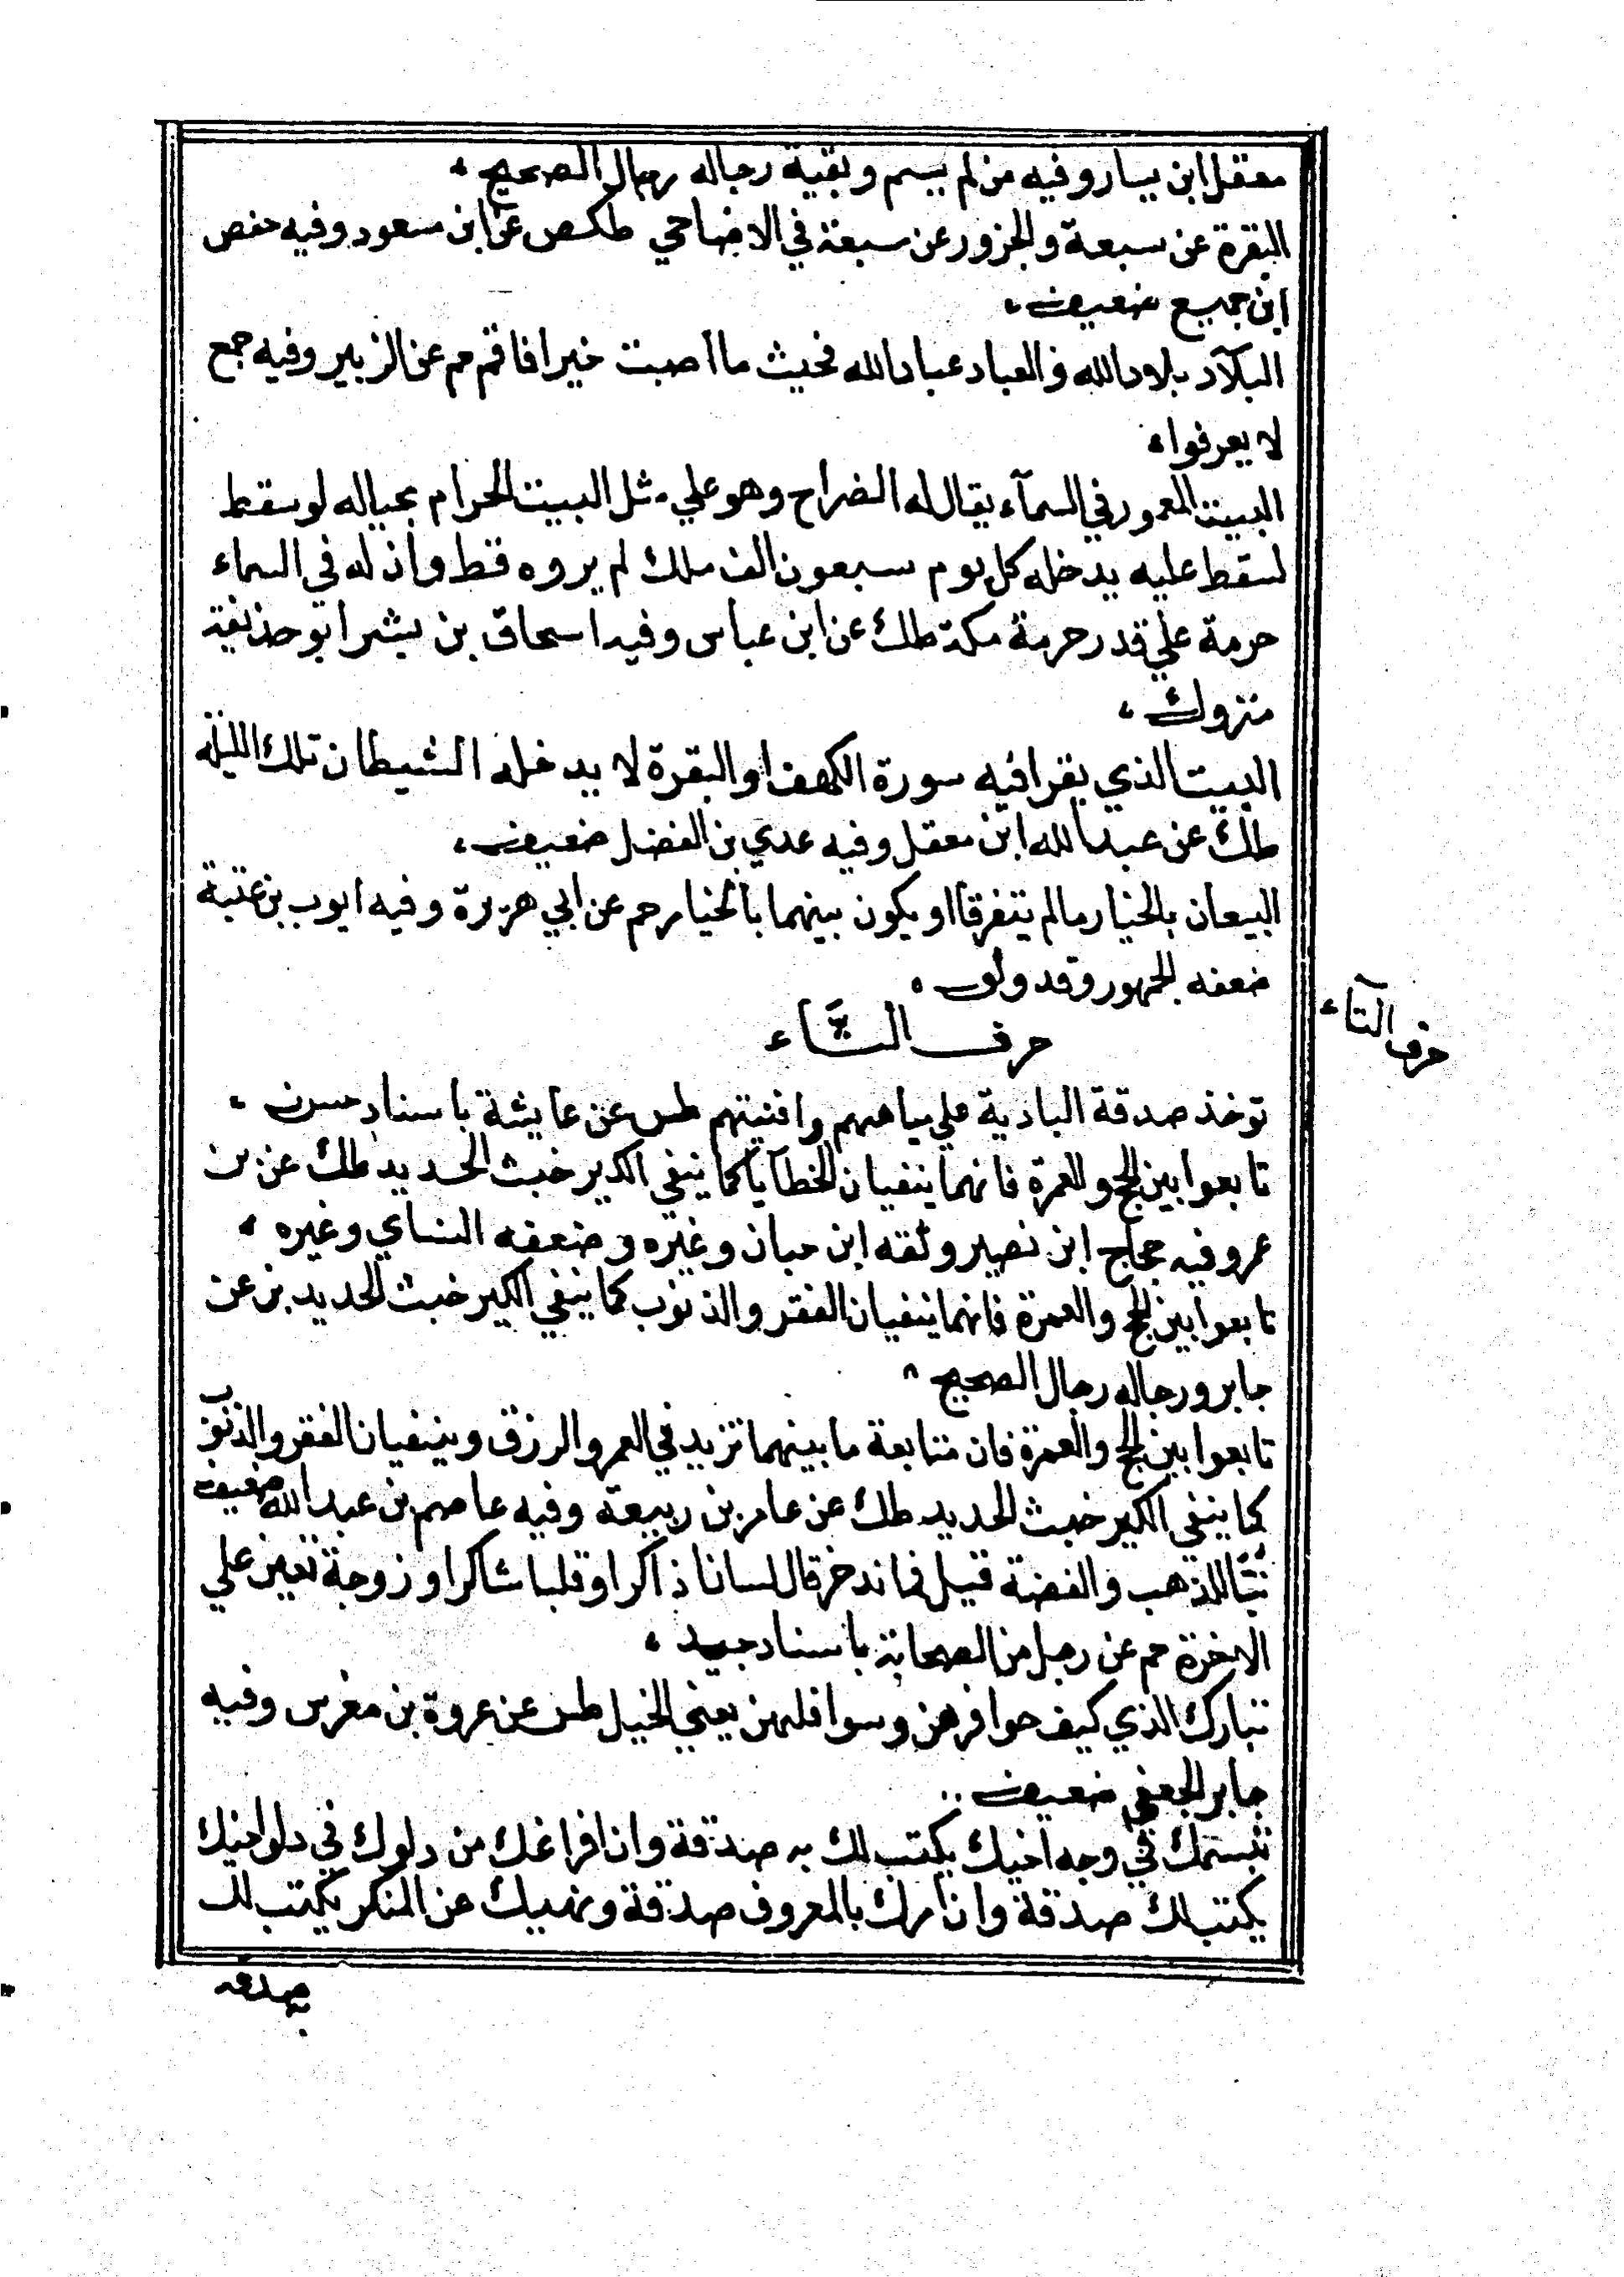 معقل ابن يسار وفيه من لم يسم وبقية رجاله رجال الصحيح ،
البقرة عن سبعة والجزور عن سبعة في الاضاحي طكص عن ابن مسعود وفيه حفص
ابن جميع ضعيف ،
البلاد بلاد الله والعباد عباد الله فحيث ما اصبت خيرا فاقم حم عن الزبير وفيه جمع
لا يعرفوا ،
البيت المعمور في السمآء يقال له الضراح وهو علي مثل البيت الحرام بحياله لو سقط
لسقط عليه يدخله كل يوم سبعون الف ملك لم يروه قط وان له في السماء
حرمة علي قدر حرمة مكة طك عن ابن عباس وفيه اسحاق بن بشر ابو حذيفة
متروك ،
البيت الذي يقرا فيه سورة الكهف او البقرة لا يدخله الشيطان تلك الليلة
طك عن عبد الله ابن معقل وفيه عدي بن الفضل ضعيف ،
البيعان بالخيار ما لم يتفرقا او يكون بينهما بالخيار حم عن ابي هريرة وفيه ايوب بن عتبة
ضعفه الجمهور وقد وثق ،
حرف التَّاء
حرف التآء
توخذ صدقة البادية علي مياههم وافنيتهم طس عن عايشة باسناد حسن ،
تابعوا بين الحج والعمرة فانهما ينفيان الخطآيا كما ينفي الكير خبث الحديد طك عن بن
عمر وفيه حجاج ابن نصير وثقه ابن حبان وغيره وضعفه النساي وغيره ،
تابعوا بين الحج والعمرة فانهما ينفيان الفقر والذنوب كما ينفي الكير خبث الحديد بز عن
جابر ورجاله رجال الصحيح ،
تابعوا بين الحج والعمرة فان متابعة ما بينهما تزيد في العمر والرزق وينفيان الفقر والذنوب
كما ينفي الكير خبث الحديد طك عن عامر بن ربيعة وفيه عاصم بن عبد الله ضعيف
تبًّا للذهب والفضة قيل فما ندخر قال لسانا ذاكرا وقلبا شاكرا وزوجة تعين علي
الاخرة حم عن رجل من الصحابة باسناد جيد ،
تبارك الذي كيف حوافرهن وسوافلهن يعني الخيل طس عن عروة بن مغرس وفيه
جابر الجعفي ضعيف ..
تبسمك في وجه اخيك يكتب لك به صدقة وان افراغك من دلوك في دلو اخيك
يكتب لك صدقة وان امرك بالمعروف صدقة ونهيك عن المنكر يكتب لك
صدقه